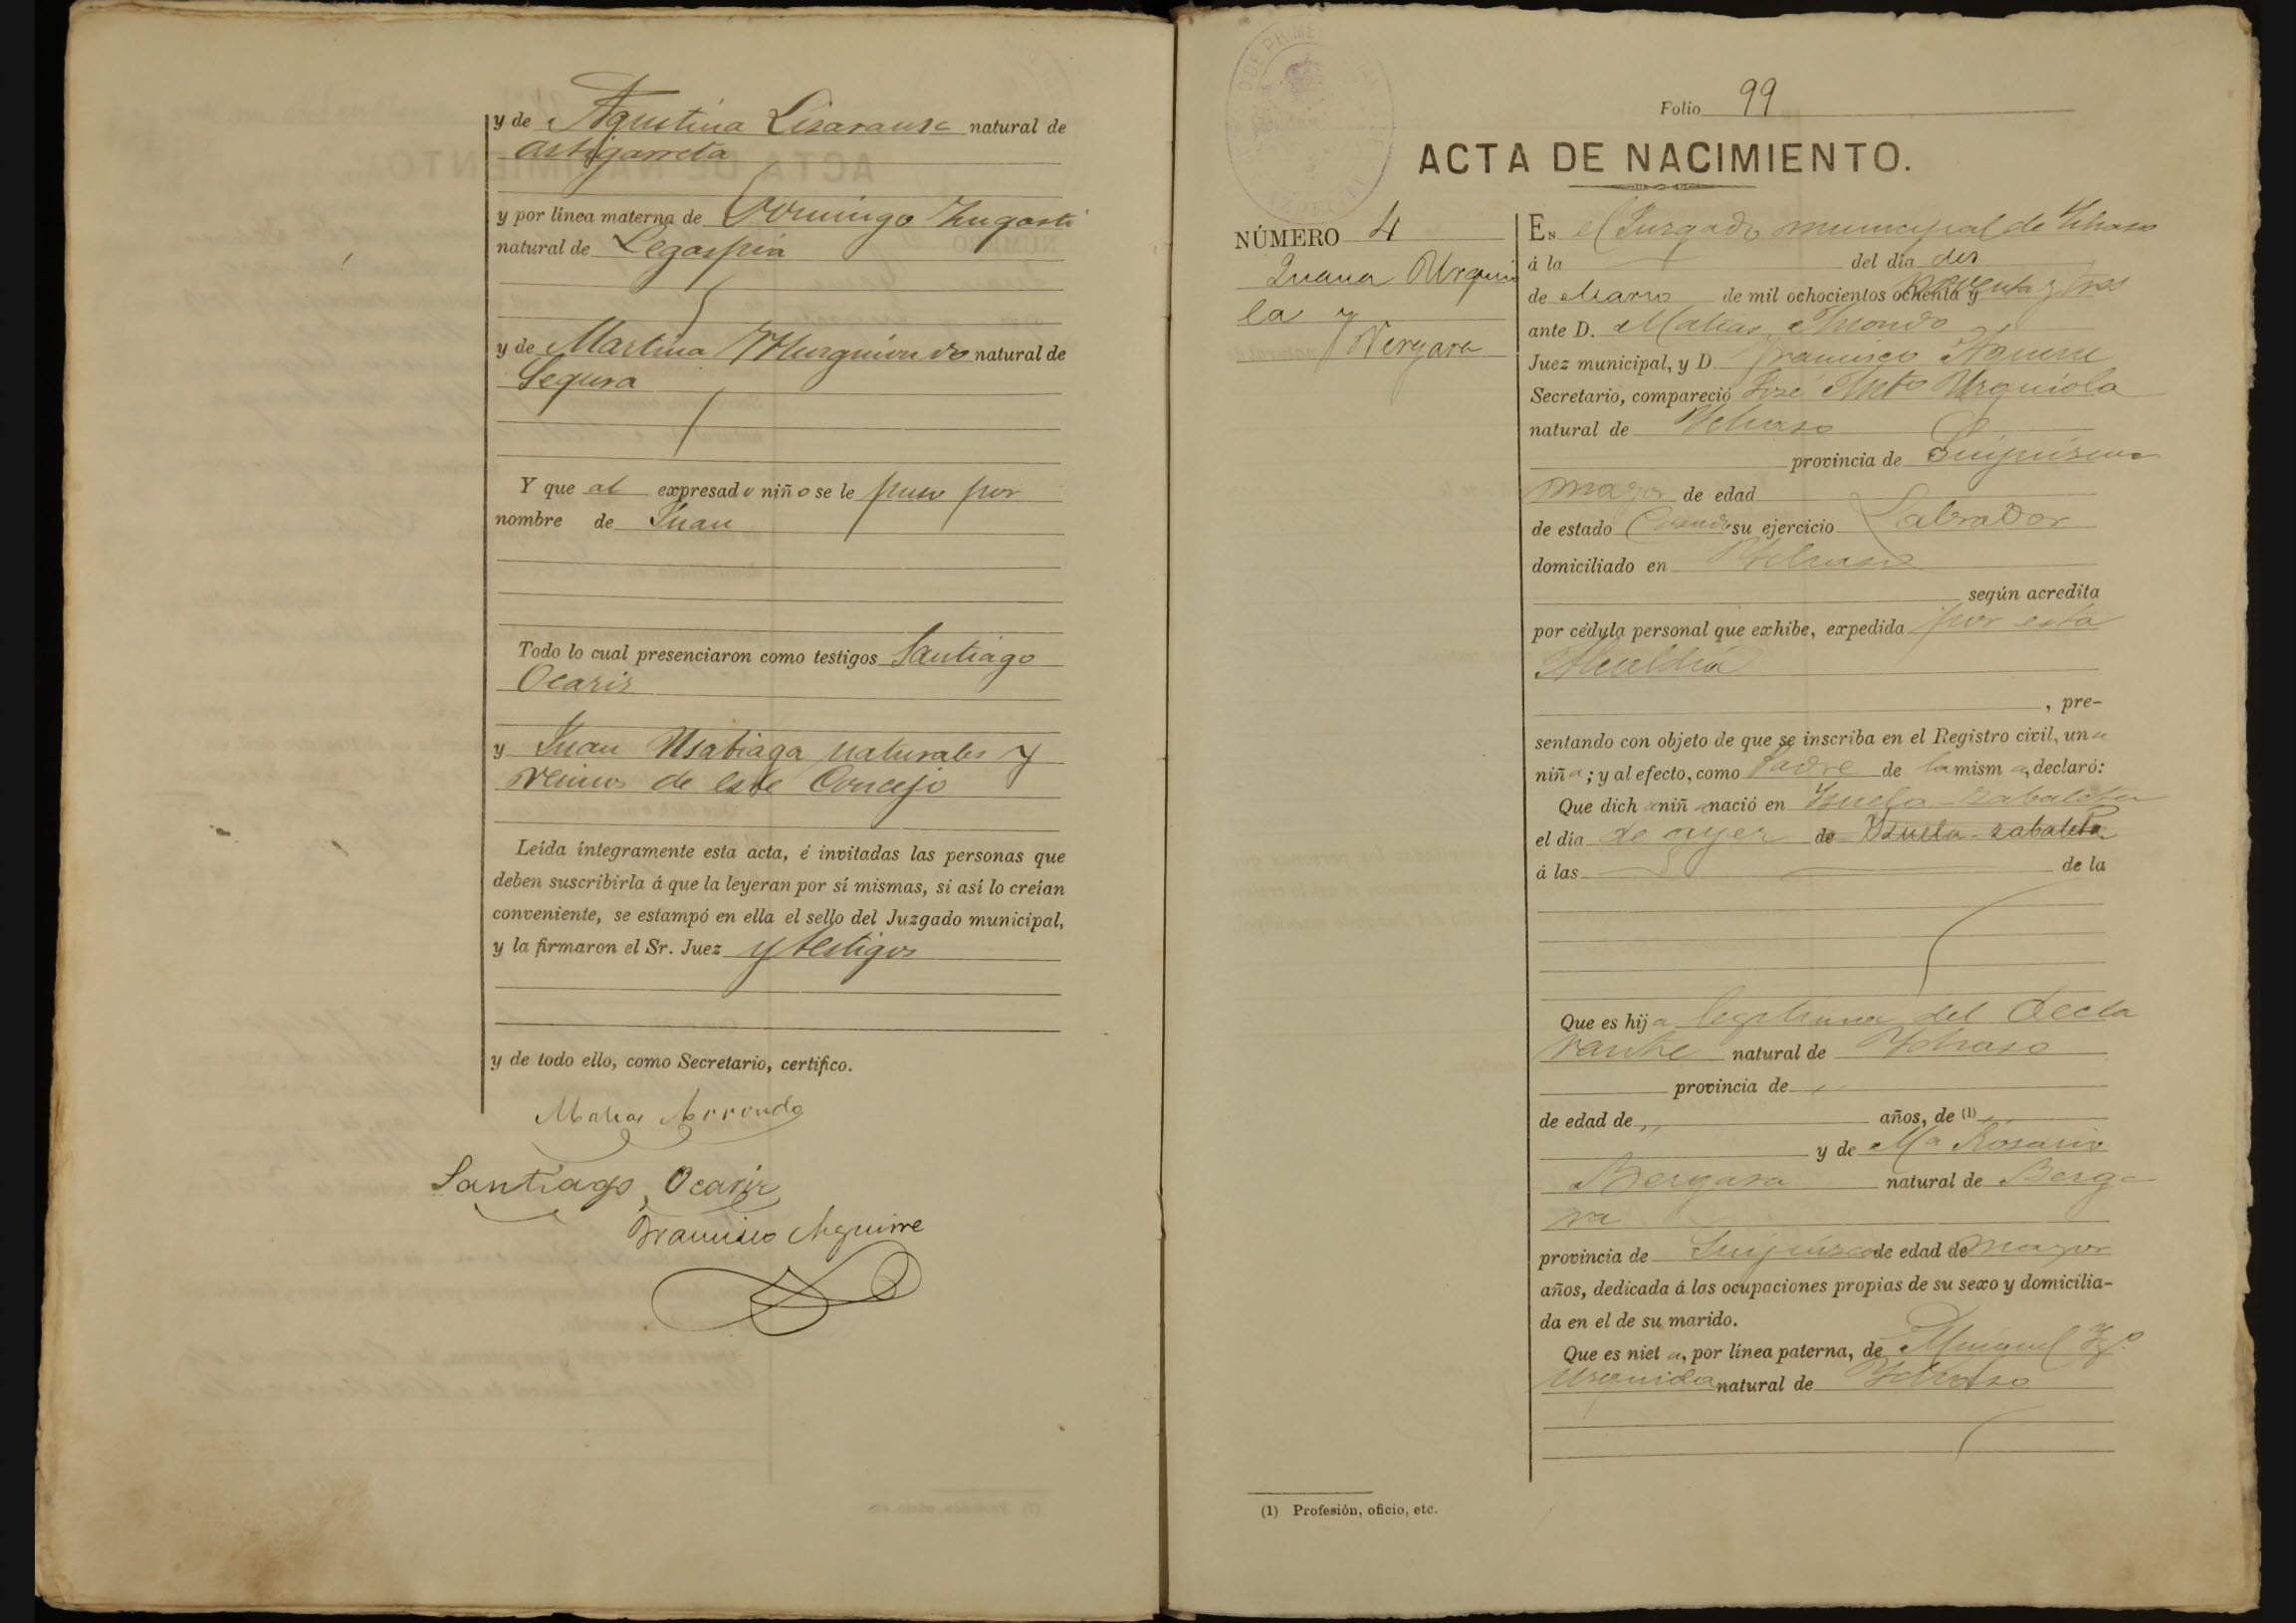 y de Agustina Lizarause natural de
Astigarreta
y por línea materna de Domingo Zugasti
natural de Legaspia
y de Martina Yhurguiondo natural de
Segura
Y que al expresado niño se le puso por
nombre de Juan
Todo lo cual presenciaron como testigos Santiago
Ocariz
y Juan Usabiaga naturales y
vecinos de este Concejo
Leída íntegramente esta acta, é invitadas las personas que
deben suscribirla á que la leyeran por sí mismas, si así lo creían
conveniente, se estampó en ella el sello del Juzgado municipal,
y la firmaron el Sr. Juez y testigos
y de todo ello, como Secretario, certifico.
Matias Arrondo
Santiago Ocariz
Francisco Aguirre
Folio 99
ACTA DE NACIMIENTO.
NÚMERO 4
Juana Urquio
la y
Vergara
En el Juzgado municipal de Ychaso
á la del día diez
de Marzo de mil ochocientos ochenta y noventa y tres
ante D. Matias Arrondo
Juez municipal, y D. Francisco Aguirre
Secretario, compareció José Anto Urquiola
natural de Ychaso
provincia de Guipúzcoa
mayor de edad
de estado Casado su ejercicio Labrador
domiciliado en Ychaso
según acredita
por cédula personal que exhibe, expedida por esta
Alcaldía
, pre-
sentando con objeto de que se inscriba en el Registro civil, una
niña; y al efecto, como Padre de la misma, declaró:
Que dicha niña nació en Yzuela-zabaleta
el día de ayer de Yzuela-zabaleta
á las de la
Que es hija legitima del decla
rante natural de Ychaso
provincia de
de edad de años, de (1)
y de Ma Rosario
Bergara natural de Berga
ra
provincia de Guipúzcoa de edad de mayor
años, dedicada á las ocupaciones propias de su sexo y domicilia-
da en el de su marido.
Que es nieta, por línea paterna, de Manuel Yg.º
Urquiola natural de Ychaso
(1) Profesión, oficio, etc.